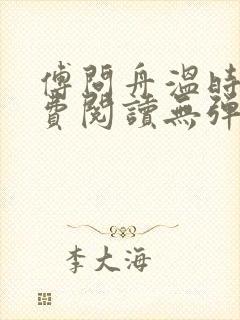 傅問舟溫時
費閱讀無彈
李大海